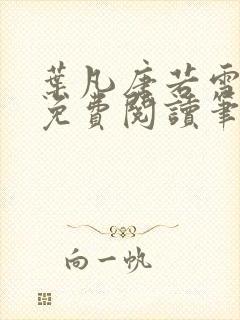 葉凡唐若雪
免費閱讀筆
向一帆